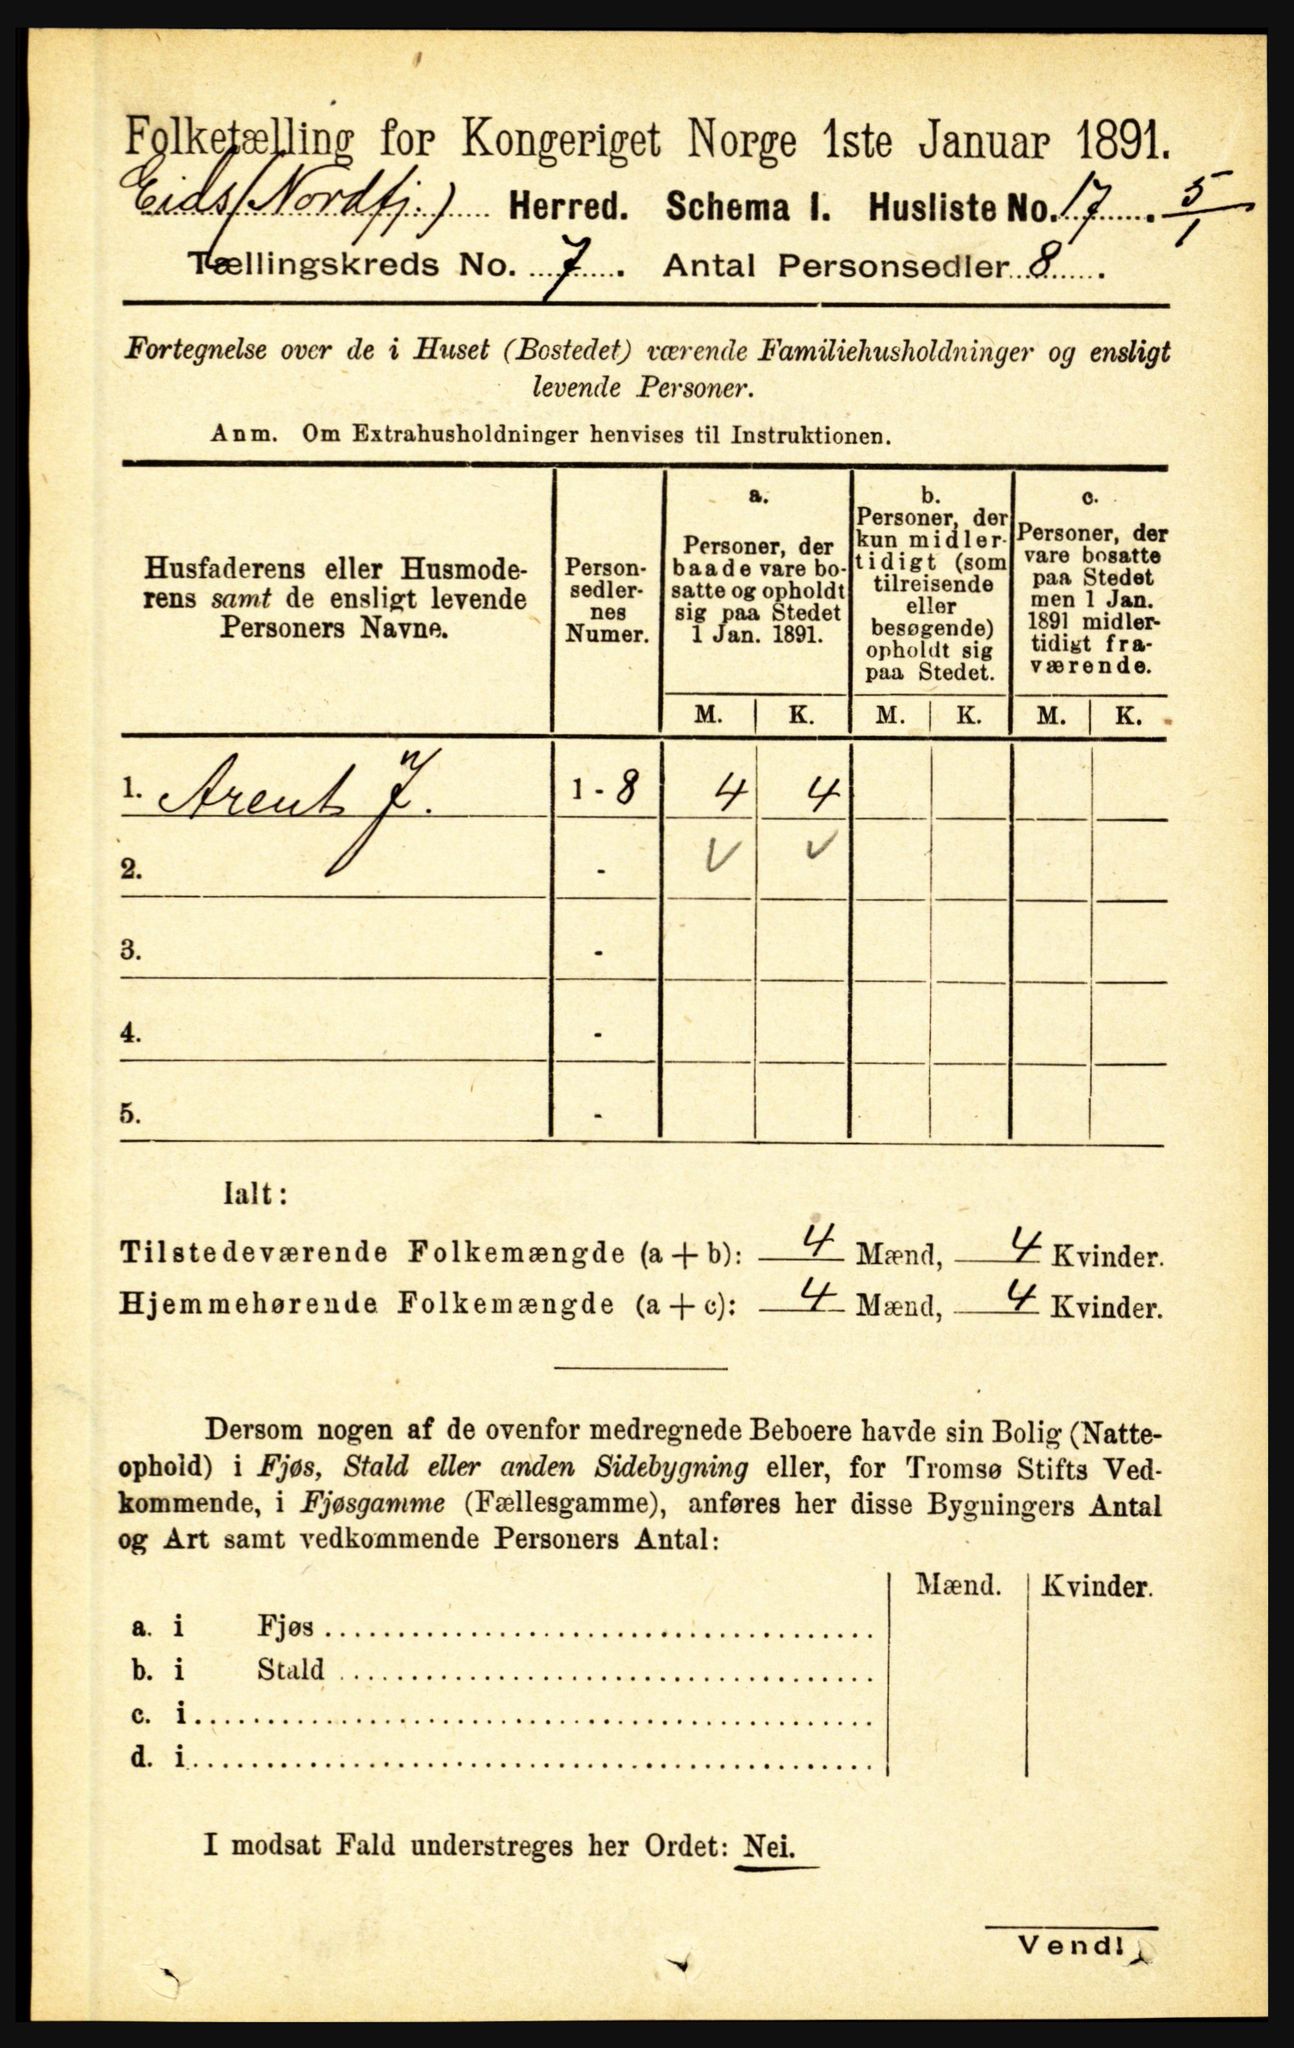 Folketælling for Kongeriget Norge 1ste Januar 1891.
Eids (Nordfj.) Herred. Schema I. Husliste No. 17. 5/1
Tællingskreds No. 7. Antal Personsedler 8.
Fortegnelse over de i Huset (Bostedet) værende Familiehusholdninger og ensligt
levende Personer.
Anm. Om Extrahusholdninger henvises til Instruktionen.
Husfaderens eller Husmode-
rens samt de ensligt levende
Personers Navne.
Person-
sedler-
nes
Numer.
a.
Personer, der
baade vare bo-
satte og opholdt
sig paa Stedet
1 Jan. 1891.
b.
Personer, der
kun midler-
tidigt (som
tilreisende
eller
besøgende)
opholdt sig
paa Stedet.
c.
Personer, der
vare bosatte
paa Stedet
men 1 Jan.
1891 midler-
tidigt fra-
værende.
M. K. M. K. M. K.
1. Arent J. 1 - 8 4 4
2. - ✓ ✓
3. -
4. -
5. -
Ialt:
Tilstedeværende Folkemængde (a + b): 4 Mænd, 4 Kvinder.
Hjemmehørende Folkemængde (a + c): 4 Mænd, 4 Kvinder.
Dersom nogen af de ovenfor medregnede Beboere havde sin Bolig (Natte-
ophold) i Fjøs, Stald eller anden Sidebygning eller, for Tromsø Stifts Ved-
kommende, i Fjøsgamme (Fællesgamme), anføres her disse Bygningers Antal
og Art samt vedkommende Personers Antal:
Mænd. Kvinder.
a. i Fjøs
b. i Stald
c. i
d. i
I modsat Fald understreges her Ordet: Nei.
Vend!